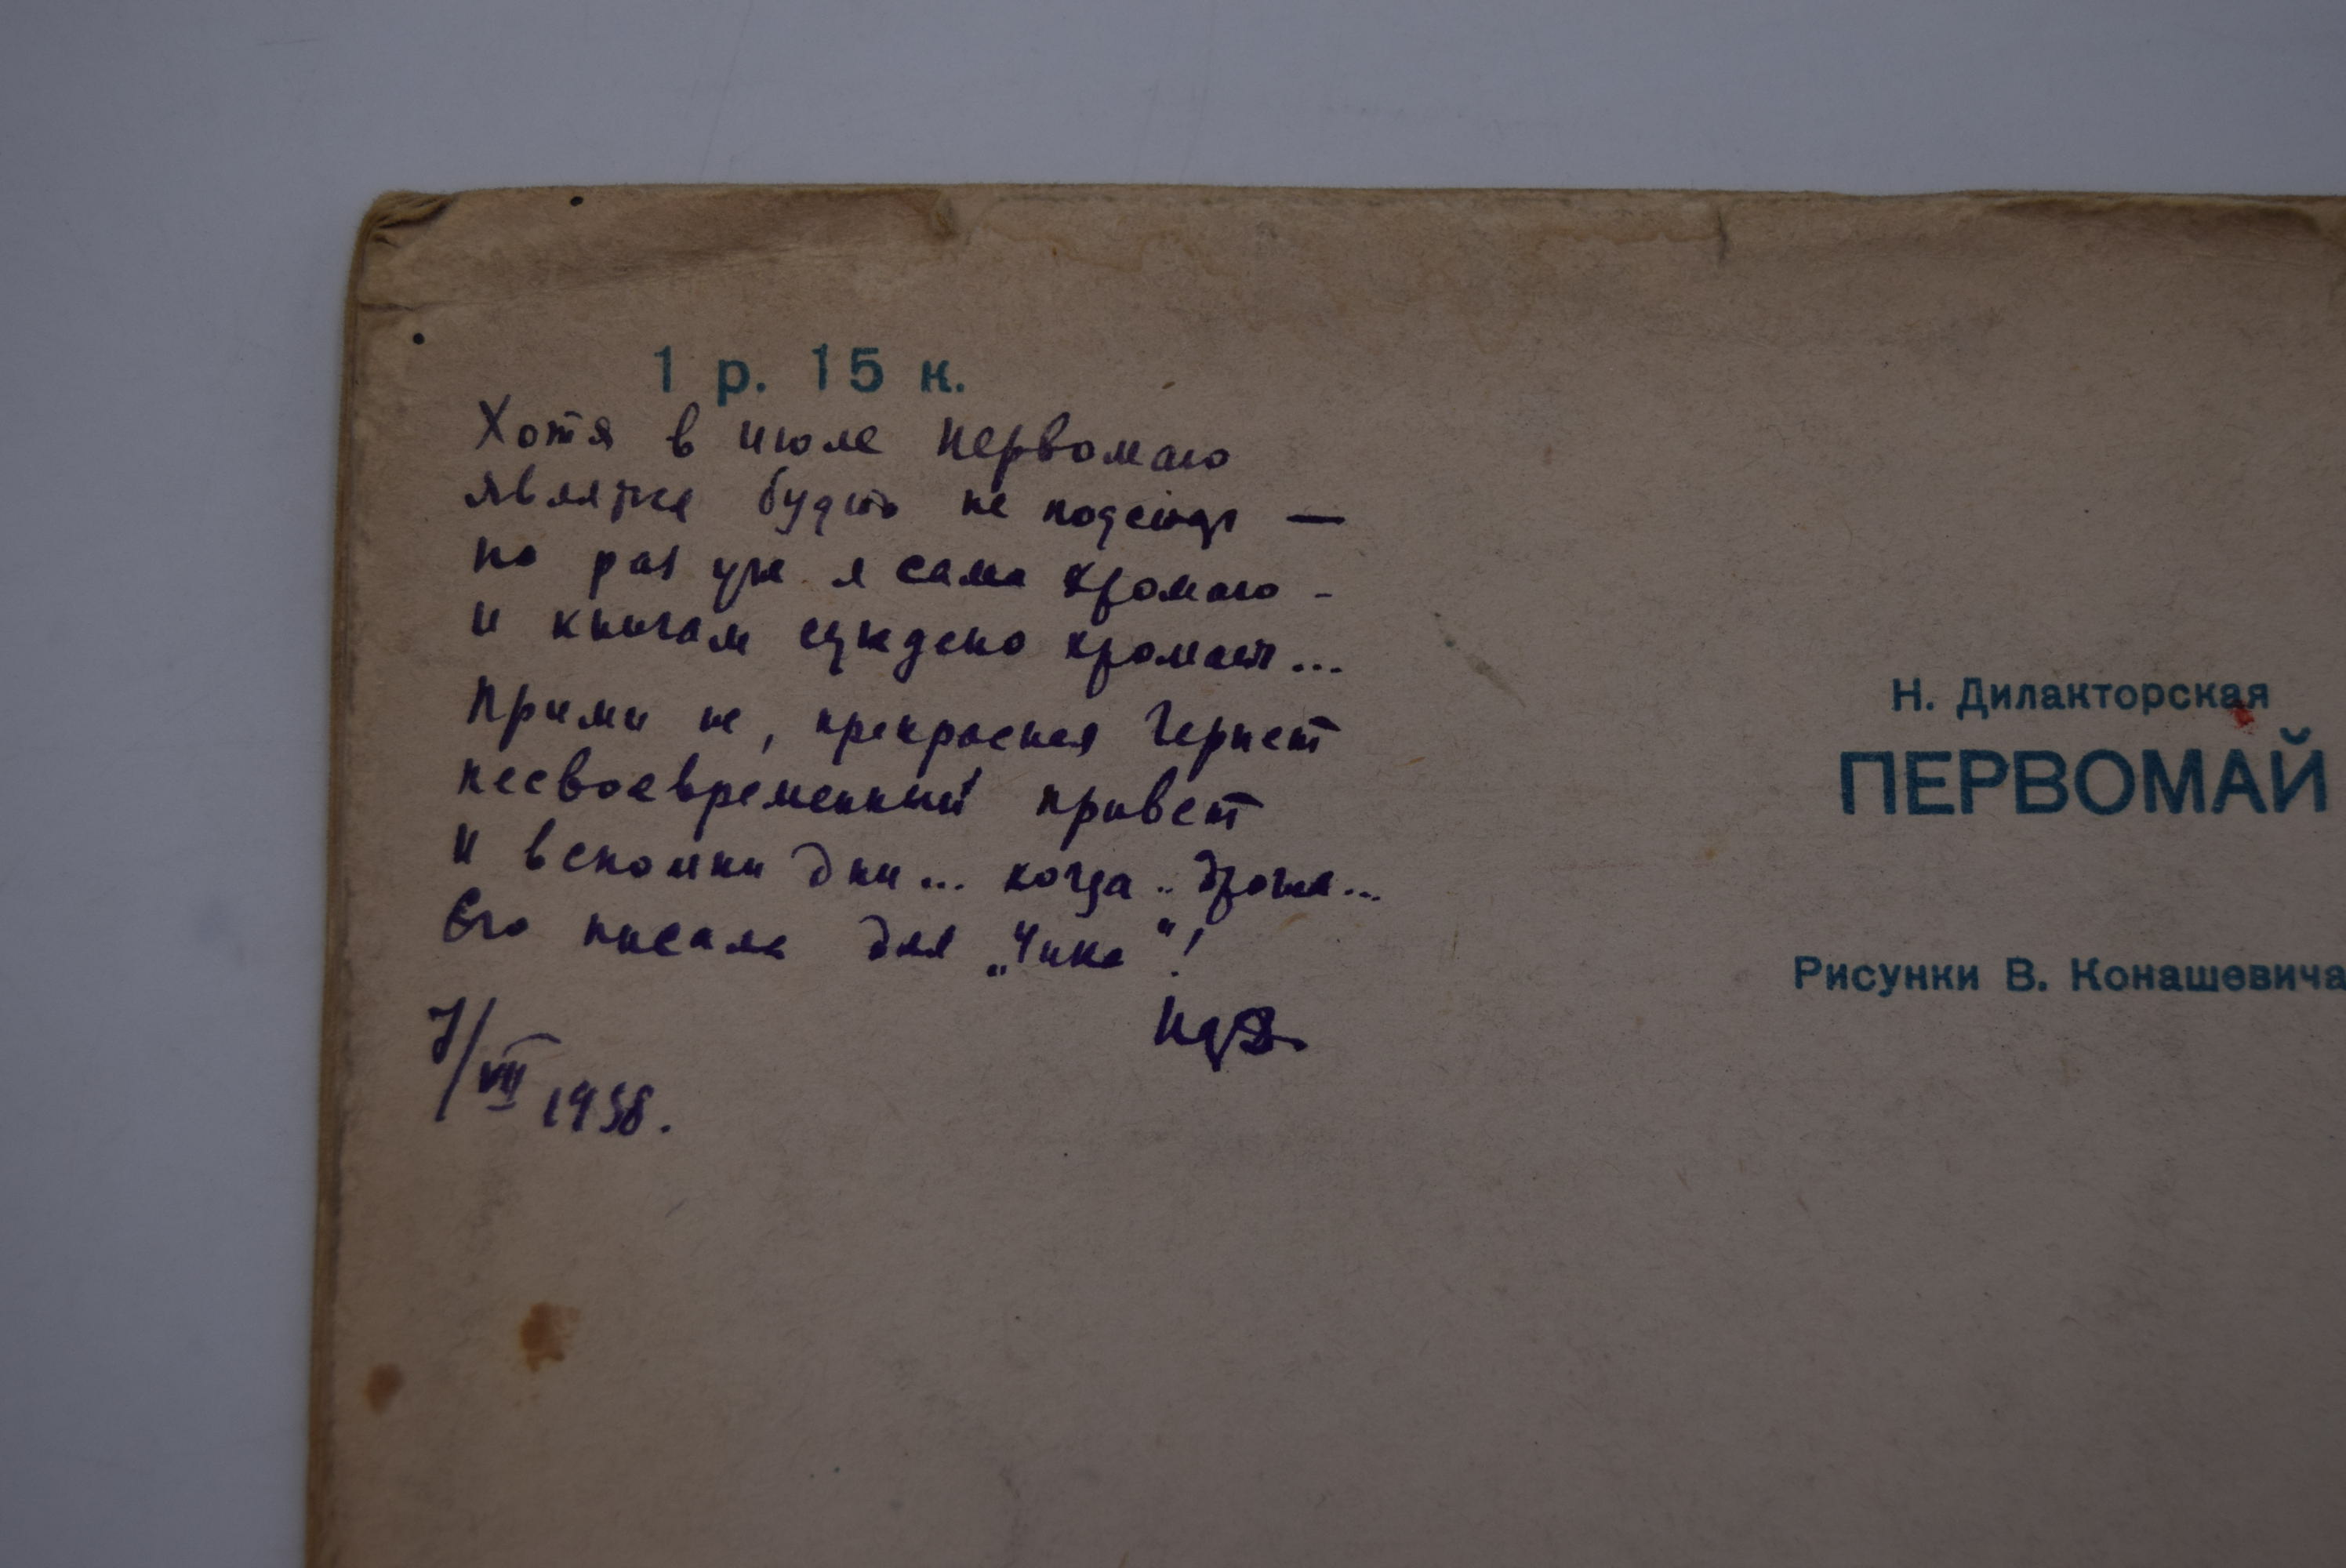 1 р. 15 к.
Хотя в июле Первомаю
являтся будто не подстать —
но раз уж я сама хромаю -
и книгам суждено хромать...
Прими же, прекрасная Гернет
несвоевременный привет
и вспомни дни... когда .. дрожа...
Его писала для „Чижа"!
7/VII 1938.
Н. Дилакторская
ПЕРВОМАЙ
Рисунки В. Конашевича